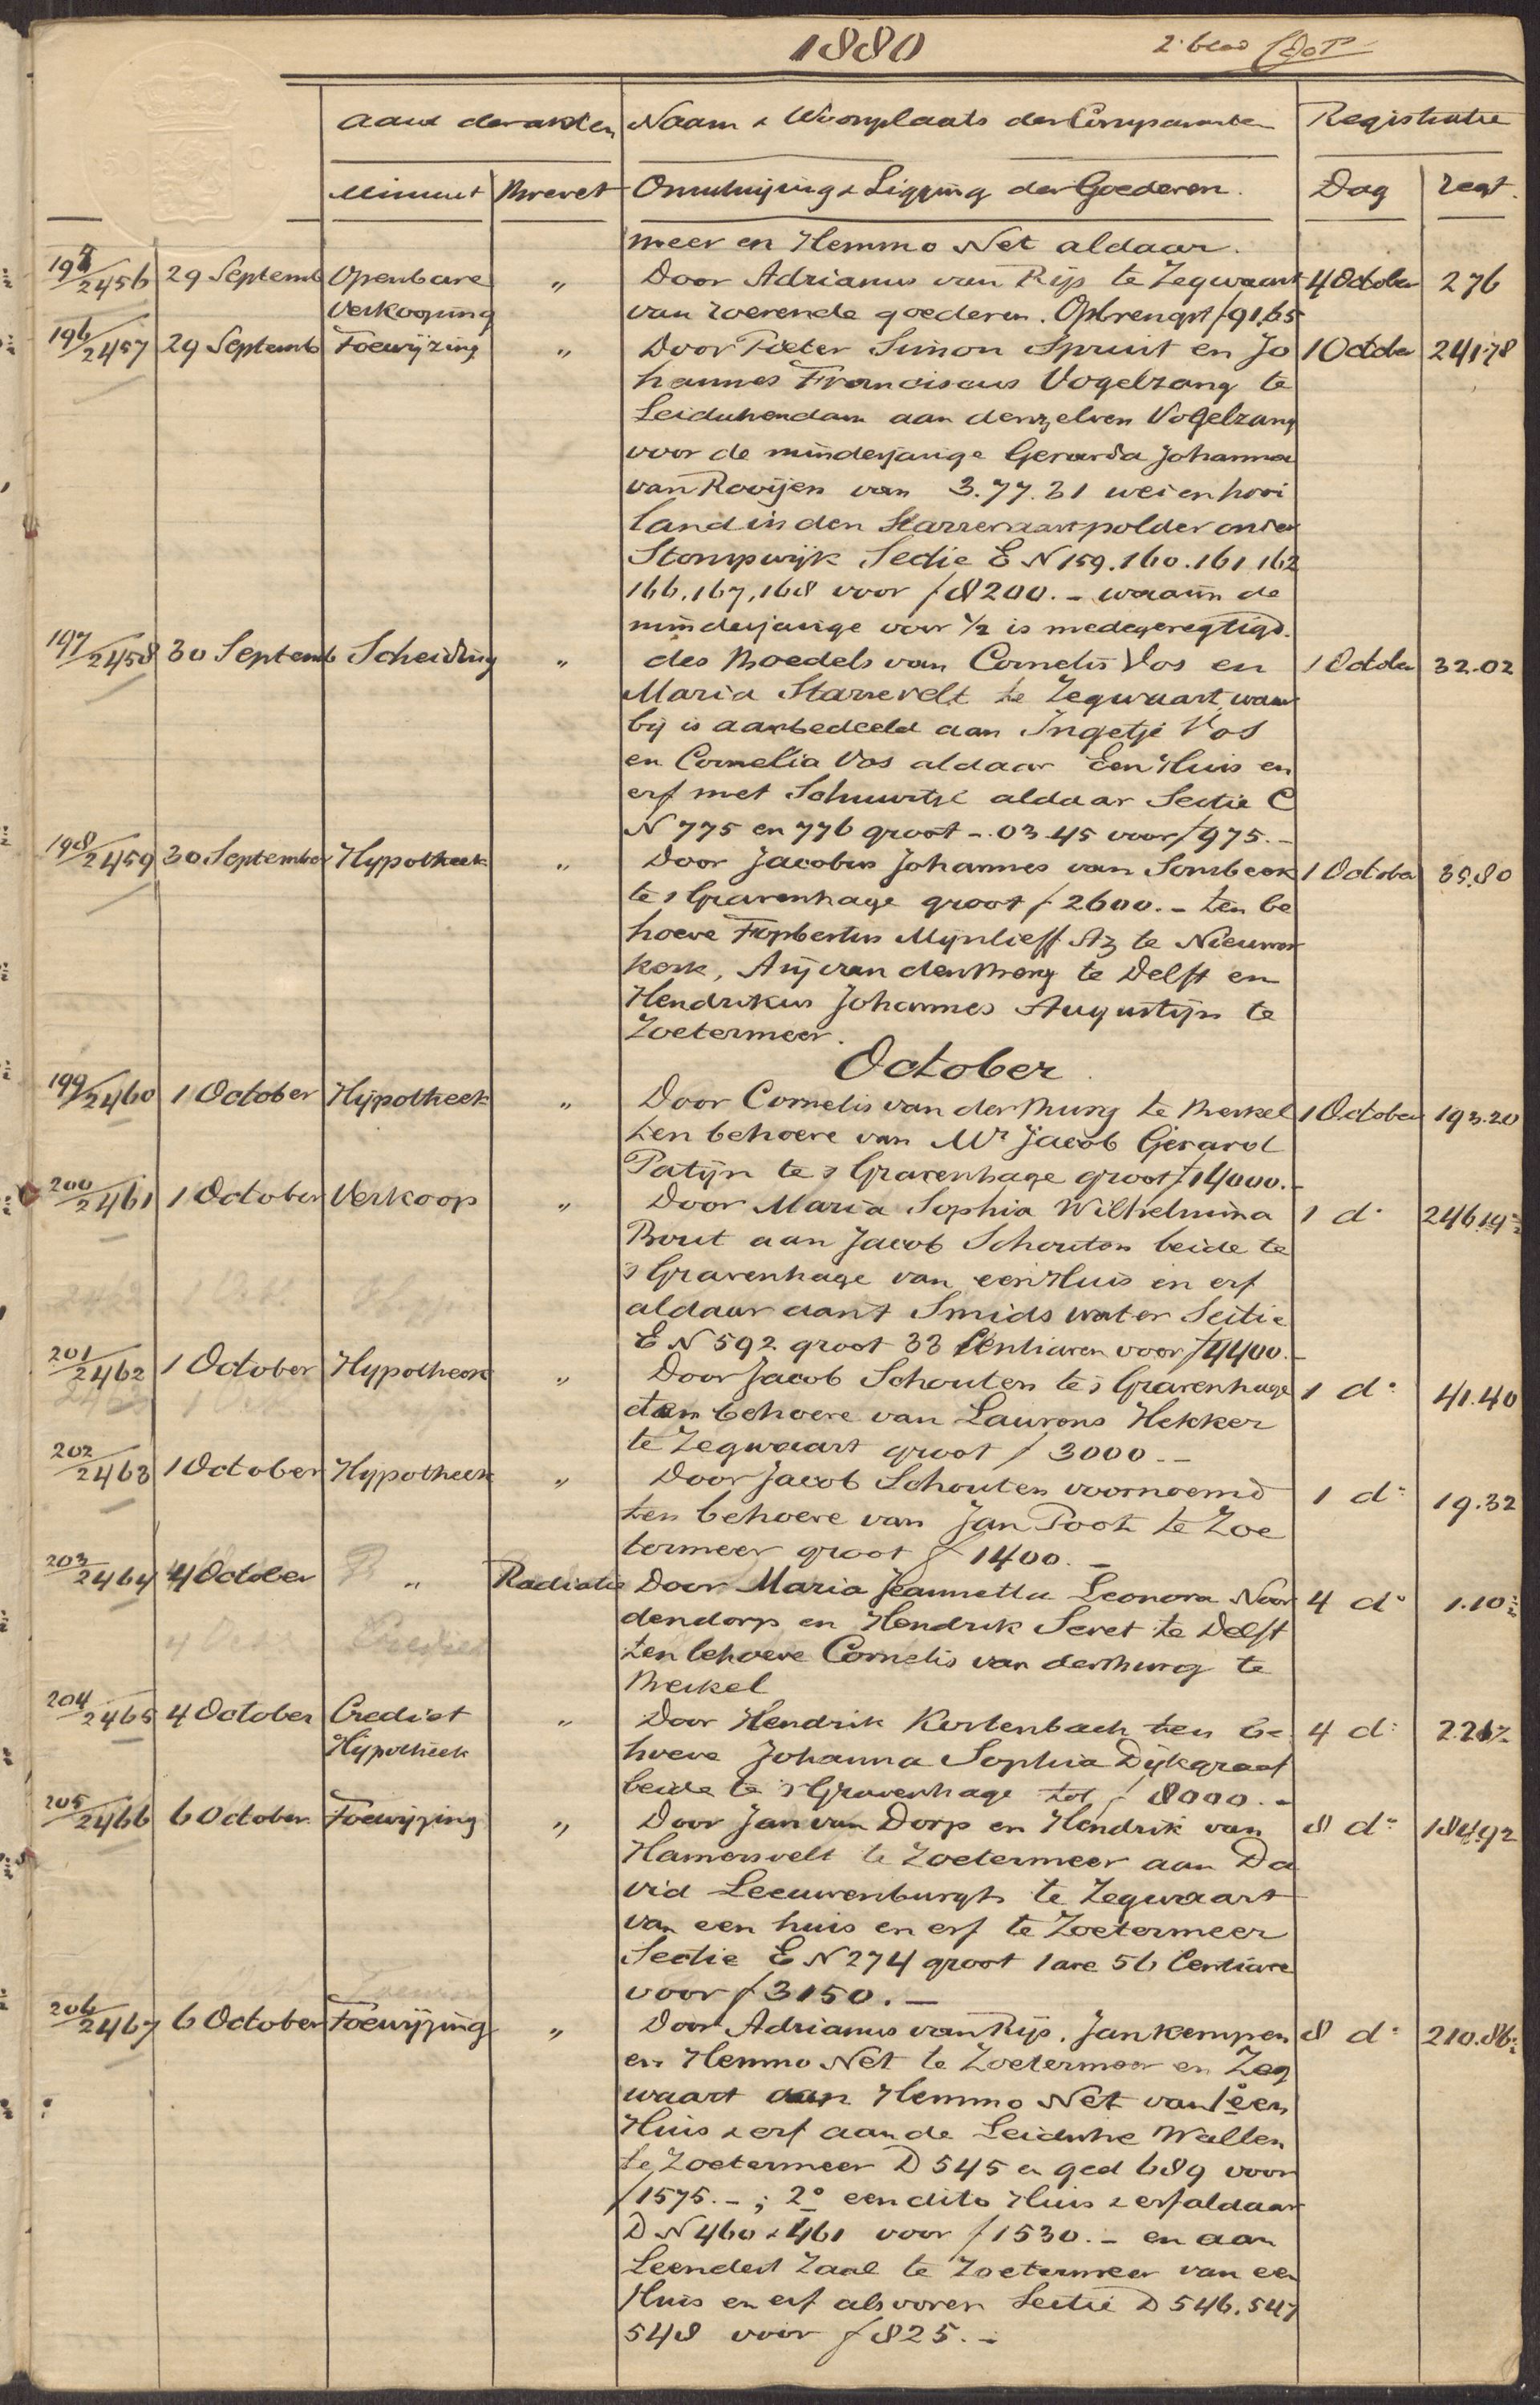 1880
2e blad
Aard der akten Naam & Woonplaats der Comparanten Registratie
Minuut Brevet Omschrijving & Ligging der Goederen. Dag regt.
meer en Hemmo Net aldaar.
195/2456 29 Septemb Openbare " Door Adrianus van Rijs te Zegwaart 4 October 276
Verkooping van roerende goederen. Opbrengst f 91,65
196/2457 29 Septemb Toewijzing " Door Pieter Simon Spruit en Jo 1 October 241.78
hannes Franciscus Vogelzang te
Leidschendam aan denzelven Vogelzang
voor de minderjarige Gerarda Johanna
van Rooijen van 3.77.31 wei en hooi
land in den Starrevaartpolder onder
Stompwijk Sectie E N 159.160.161.162
166,167,168 voor f 8200.- waarin de
minderjarige voor 1/2 is medegeregtigd.
197/2458 30 Septemb Scheiding " des Boedels van Cornelis Vos en 1 October 32.02
Maria Starrevelt te Zegwaart waar
bij is aanbedeeld aan Ingetje Vos
en Cornelia Vos aldaar Een Huis en
erf met Schuurtje aldaar Sectie C
N 775 en 776 groot -.03.45 voor f 975.-
198/2459 30 September Hypotheek " Door Jacobus Johannes van Sombeek 1 October 35.80
te s Gravenhage groot f 2600.- ten be
hoeve Fopbertus Mijnlieff Az te Nieuwer
kerk, Arij van den Berg te Delft en
Hendrikus Johannes Augustijn te
Zoetermeer.
October
199/2460 1 October Hypotheek " Door Cornelis van der Burg te Berkel 1 October 193.20
ten behoeve van Mr Jacob Gerard
Patijn te s Gravenhage groot f 14000.-
200/2461 1 October Verkoop " Door Maria Sophia Wilhelmina 1 do 246.19
Bout aan Jacob Schouten beide te
s Gravenhage van een Huis en erf
aldaar aan 't Smids water Sectie
E N 592 groot 33 Centiaren voor f 4400.-
201/2462 1 October Hypotheek " Door Jacob Schouten te s Gravenhage 1 do 41.40
ten behoeve van Laurens Hekker
te Zegwaart groot f 3000.-
202/2463 1 October Hypotheek " Door Jacob Schouten voornoemd 1 do 19.32
ten behoeve van Jan Poot te Zoe
termeer groot f 1400.-
203/2464 4 October " Radiatie Door Maria Jeannetta Leonora Noor 4 do 1.10½
dendorp en Hendrik Seret te Delft
ten behoeve Cornelis van der Burg te
Berkel
204/2465 4 October Crediet " Door Hendrik Kortenbach ten be 4 do 2.21
Hypotheek hoeve Johanna Sophia Dijkgraaf
beide te s Gravenhage tot f 8000.-
205/2466 6 October Toewijzing " Door Jan van Dorp en Hendrik van 8 do 184.92
Hamersvelt te Zoetermeer aan Da
vid Leeuwenburgh te Zegwaart
van een huis en erf te Zoetermeer
Sectie E N 274 groot 1 are 56 Centiare
voor f 3150.-
206/2467 6 October Toewijzing " Door Adrianus van Rijs, Jan Kempen 8 do 210.86½
en Hemmo Net te Zoetermeer en Zeg
waart aan Hemmo Net van 1e een
Huis & erf aan de Leidsche Wallen
te Zoetermeer D 545 en ged 689 voor
f 1575.-; 2o een dito Huis & erf aldaar
D N 460 & 461 voor f 1530.- en aan
Leendert Zaal te Zoetermeer van een
Huis en erf als voren Sectie D 546.547
548 voor f 825.-